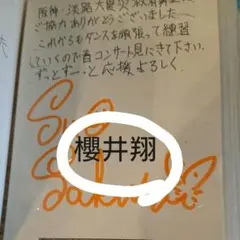 阪神・淡路大震災救済募金に
ご協力ありがとうございました
これからもダンスを頑張って練習
していくので是非コンサート見にきて下さい。
ずっとずーっと応援よろしく
Sho
櫻井翔
Sakurai